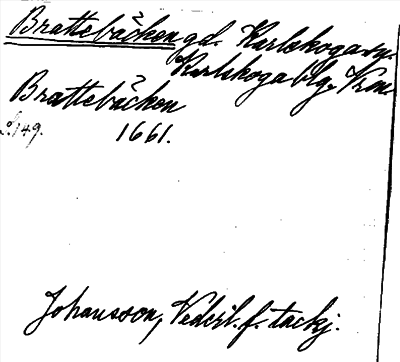 Brattebäcken gd. Karlskoga sn.
Karlskoga blg. Vrm.
Brattebäcken
S. 149. 1661.
Johansson, Vederl. f. tackj.